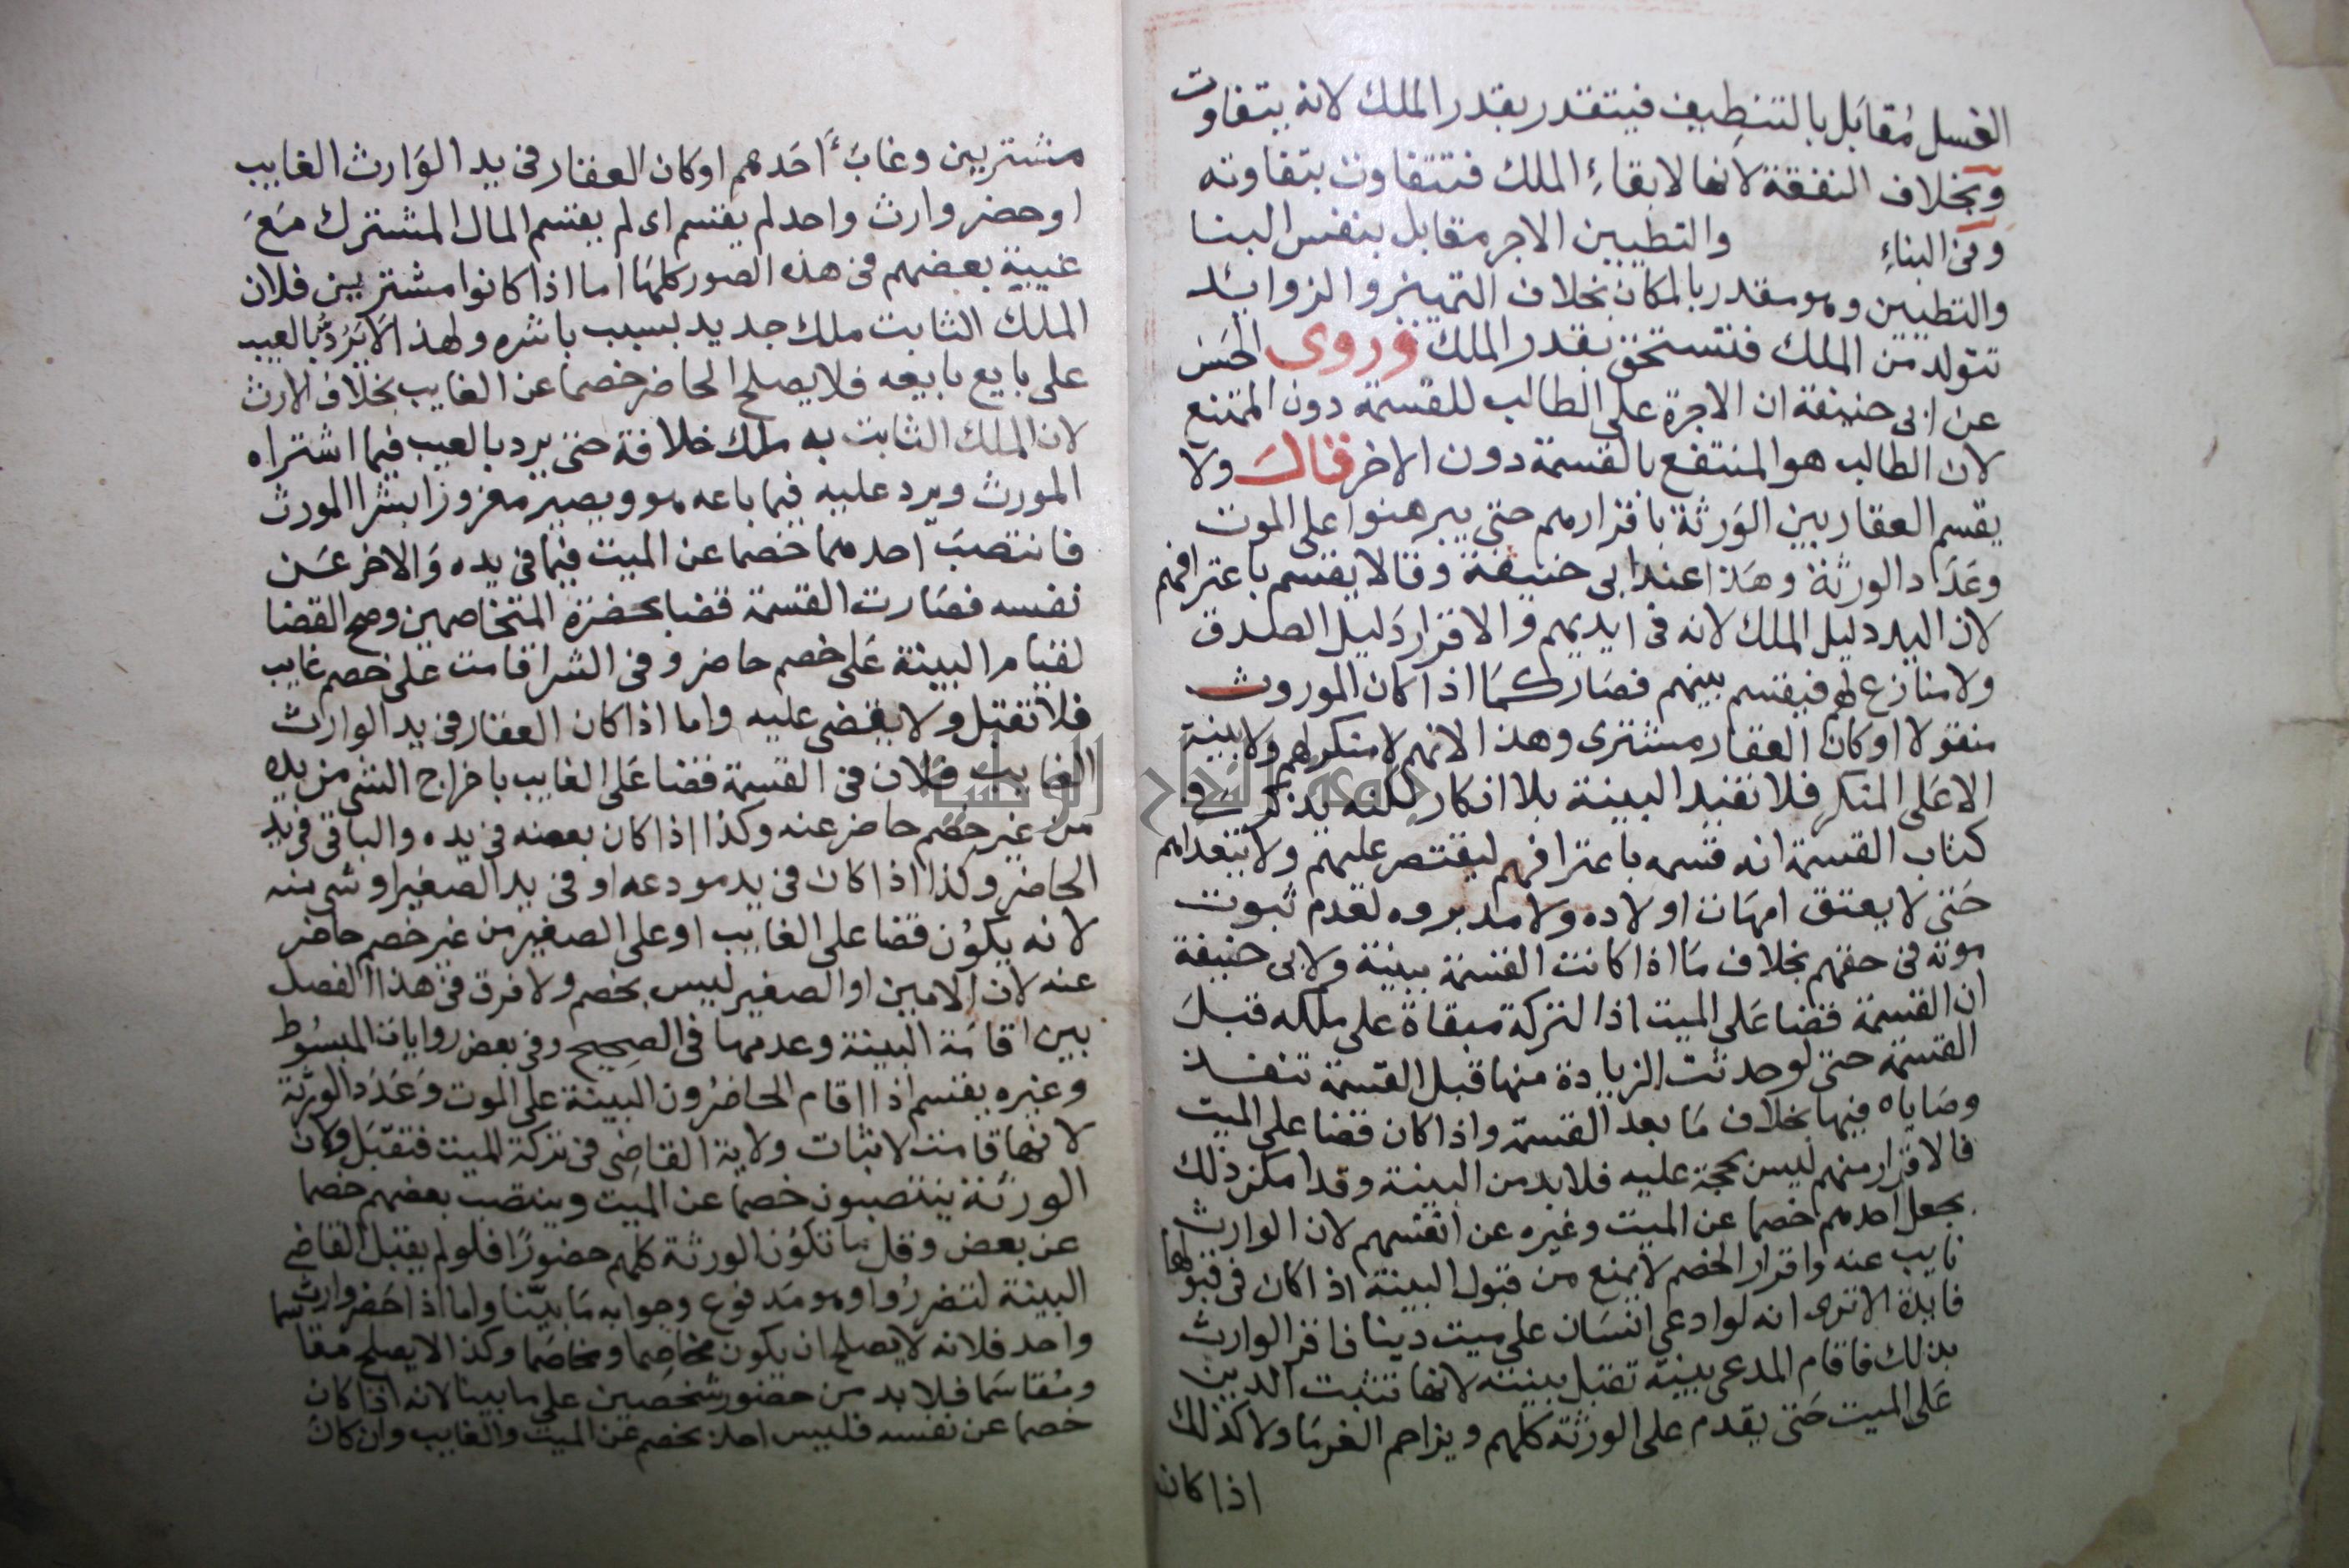 الغسل مُقابَل بالتنظيف فيتقدر بقدر الملك لانه يتفاوت
وبخلاف النفقة لانها لابقاء الملك فتتفاوت بتفاوته
وفى البناء والتطيين الاجر مقابل بنفس البنا
والتطيين وهو متقدر بالمكان بخلاف الثمينر والزوايد
تتولد من الملك فتستحق بقدر الملك وروى الحسن
عن ابى حنيفة ان الاجرة على الطالب للقسمة دون الممتنع
لان الطالب هو المنتفع بالقسمة دون الاخر قال ولا
يقسم العقار بين الورثة باقرارهم حتى يبرهنوا على الموت
وعَدَاد الورثة وهذا عند ابى حنيفة وقالا يقسم باعترافهم
لان اليد دليل الملك لانه فى ايديهم والاقرار دليل الصدق
ولا منازع لهم فيقسم بينهم فصار كما اذا كان الموروث
منقولا اوكان العقار مشترى وهذا لانهم لا منكر لهم ولا بينة
الا على المنكر فلا تفيد البينة بلا انكار لكنه يذكر فى
كتاب القسمة انه قسمه باعترافهم ليقتصر عليهم ولا يتعداهم
حتى لا يعتق امهات اولاده ولا مدبروه لعدم ثبوت
موته فى حقهم بخلاف ما اذا كانت القسمة ببينة ولابى حنيفة
ان القسمة قضا على الميت اذ التركة مبقاة على ملكه قبل
القسمة حتى لو حدثت الزيادة منها قبل القسمة تنفذ
وصاياه فيها بخلاف ما بعد القسمة واذا كان قضا على الميت
فالاقرار منهم ليس بحجة عليه فلا بد من البينة وقد امكن ذلك
بجعل احدهم خصما عن الميت وغيره عن انفسهم لان الوارث
نايب عنه واقرار الخصم لا يمنع من قبول البينة اذا كان فى قبولها
فايدة الا ترى انه لو ادعى انسان على ميت دينا فاقر الوارث
بذلك فاقام المدعى بينة تقبل بينته لانها تثبت الدين
على الميت حتى يقدم على الورثة كلهم ويزاحم الغرما ولا كذلك
اذا كان
مشتريين وغاب احدهم او كان العقار فى يد الوارث الغايب
او حضر وارث واحد لم يقسم اى لم يقسم المال المشترك مع
غيبة بعضهم فى هذه الصور كلها اما اذا كانوا مشتريين فلان
الملك الثابت ملك جديد بسبب باشره ولهذا لا يَرُدُّ بالعيب
على بايع بايعه فلا يصلح الحاضر خصما عن الغايب بخلاف الارث
لان الملك الثابت به ملك خلافة حتى يرد بالعيب فيما اشتراه
المورث ويرد عليه فيما باعه هو ويصير مغرورا بشرا المورث
فانتصب احدهما خصما عن الميت فيما فى يده والاخر عن
نفسه فصارت القسمة قضا بحضرة المتخاصمين وصح القضا
لقيام البينة على خصم حاضر وفى الشرا قامت على خصم غايب
فلا تقبل ولا يقضى عليه واما اذا كان العقار فى يد الوارث
الغايب فلان فى القسمة قضا على الغايب باخراج الشى من يده
من غير خصم حاضر عنه وكذا اذا كان بعضه فى يده والباقى فى يد
الحاضر وكذا اذا كان فى يد مودعه او فى يد الصغير او شى منه
لانه يكون قضا على الغايب او على الصغير من غير خصم حاضر
عنه لان الامين او الصغير ليس بخصم ولا فرق فى هذا الفصل
بين اقامة البينة وعدمها فى الصحيح وفى بعض روايات المبسوط
وغيره يقسم اذا اقام الحاضرون البينة على الموت وعدد الورثة
لانها قامت لاثبات ولاية القاضى فى تركة الميت فتقبل ولان
الورثة ينتصبون خصما عن الميت وينتصب بعضهم خصما
عن بعض وقل ما تكون الورثة كلهم حضورًا فلو لم يقبل القاضى
البينة لتضرروا وهو مدفوع وجوابه ما بيّنا واما اذا حضر وارث
واحد فلانه لا يصلح ان يكون مخاصِما ومخاصَما وكذا لا يصلح مقاسما
ومقاسَما فلا بد من حضور شخصين على ما بينا لانه اذا كان
خصما عن نفسه فليس احد يخصم عن الميت والغايب وان كان
جامعة النجاح الوطنية